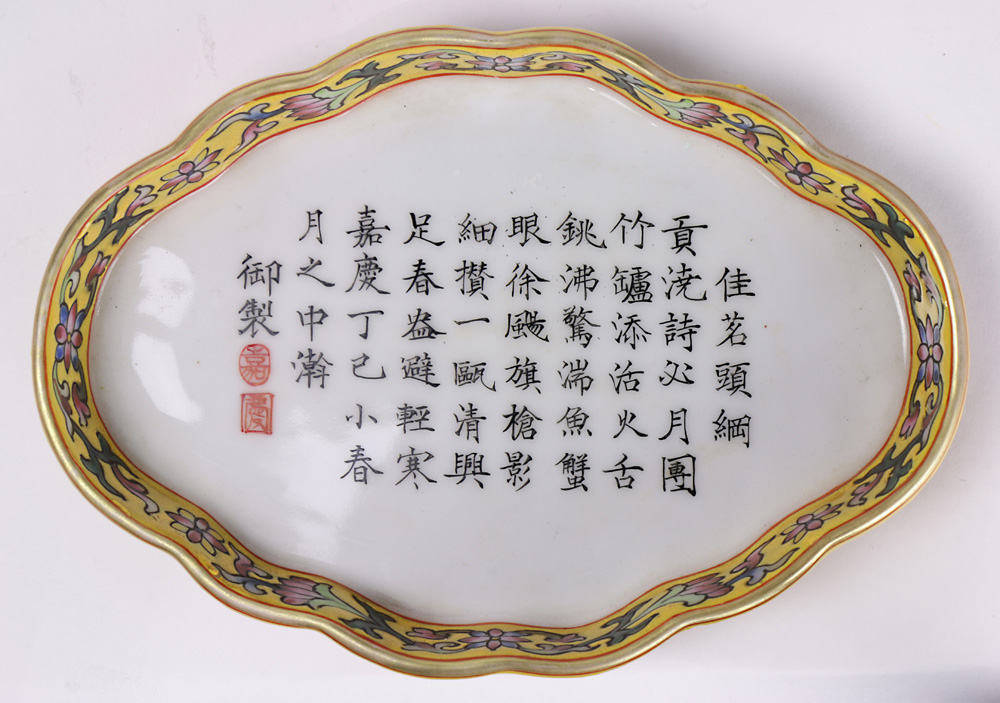 佳茗頭綱
貢浇詩必月團
竹罏添活火舌
銚沸驚湍魚蟹
眼徐颺旗槍影
細攢一甌清興
足春盎避輕寒
嘉慶丁已小春
月之中澣
御製
嘉
慶